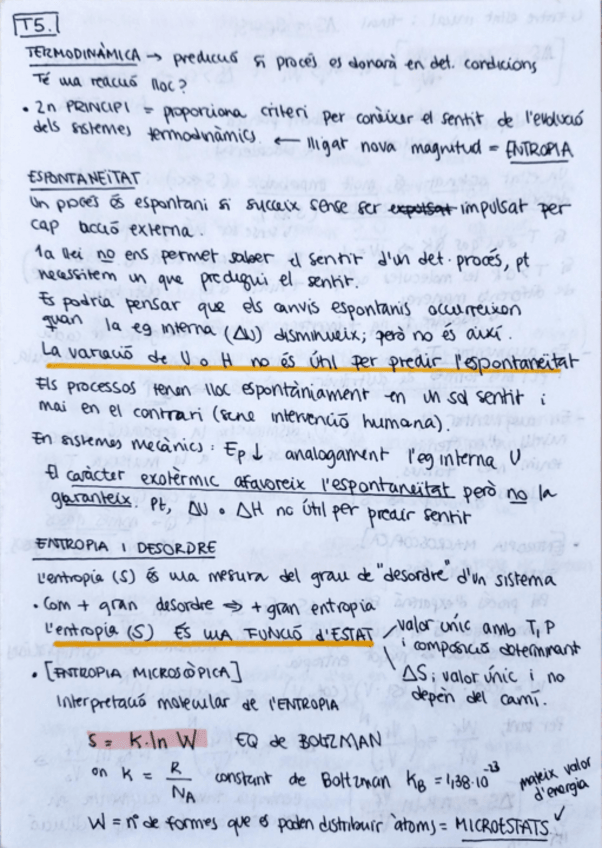 T5.
TERMODINÀMICA → predicció si procés es donarà en det. condicions
Té una reacció lloc?
• 2n PRINCIPI = proporciona criteri per conèixer el sentit de l'evolució
dels sistemes termodinàmics ← lligat nova magnitud = ENTROPIA
ESPONTANEÏTAT
Un procés és espontani si succeix sense ser impulsat per
cap acció externa.
1a llei no ens permet saber el sentit d'un det. procés, pt
necessitem un que predigui el sentit.
Es podria pensar que els canvis espontanis occurreixen
quan la eg interna (ΔU) disminueix; però no és així.
La variació de U o H no és útil per predir l'espontaneïtat
Els processos tenen lloc espontàniament en un sol sentit i
mai en el contrari (sense intervenció humana).
En sistemes mecànics: Ep↓ analogament l'eg interna U
El caràcter exotèrmic afavoreix l'espontaneïtat però no la
garanteix. Pt, ΔU o ΔH no útil per predir sentit
ENTROPIA I DESORDRE
L'entropia (S) és una mesura del grau de "desordre" d'un sistema
• Com + gran desordre ⇒ + gran entropia
L'entropia (S) ES UNA FUNCIÓ d'ESTAT
valor únic amb T, P
composició determinant
ΔS; valor únic i no
depèn del camí.
• [ENTROPIA MICROSCÒPICA]
Interpretació molecular de l'ENTROPIA
S = K·ln W EQ de BOLTZMAN
on K = R/NA constant de Boltzman KB = 1,38·10⁻²³
mateix valor
d'energia
W = nº de formes que es poden distribuir àtoms = MICROESTATS